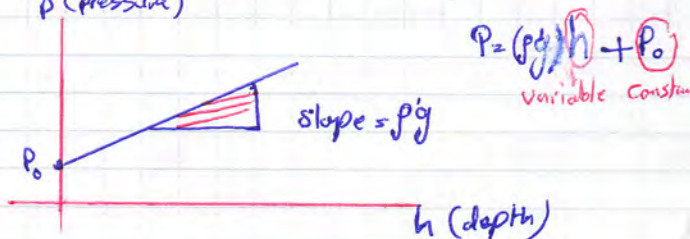 P (pressure)
P = (ρg)h + P₀
variable Constan
slope = ρg
P₀
h (depth)